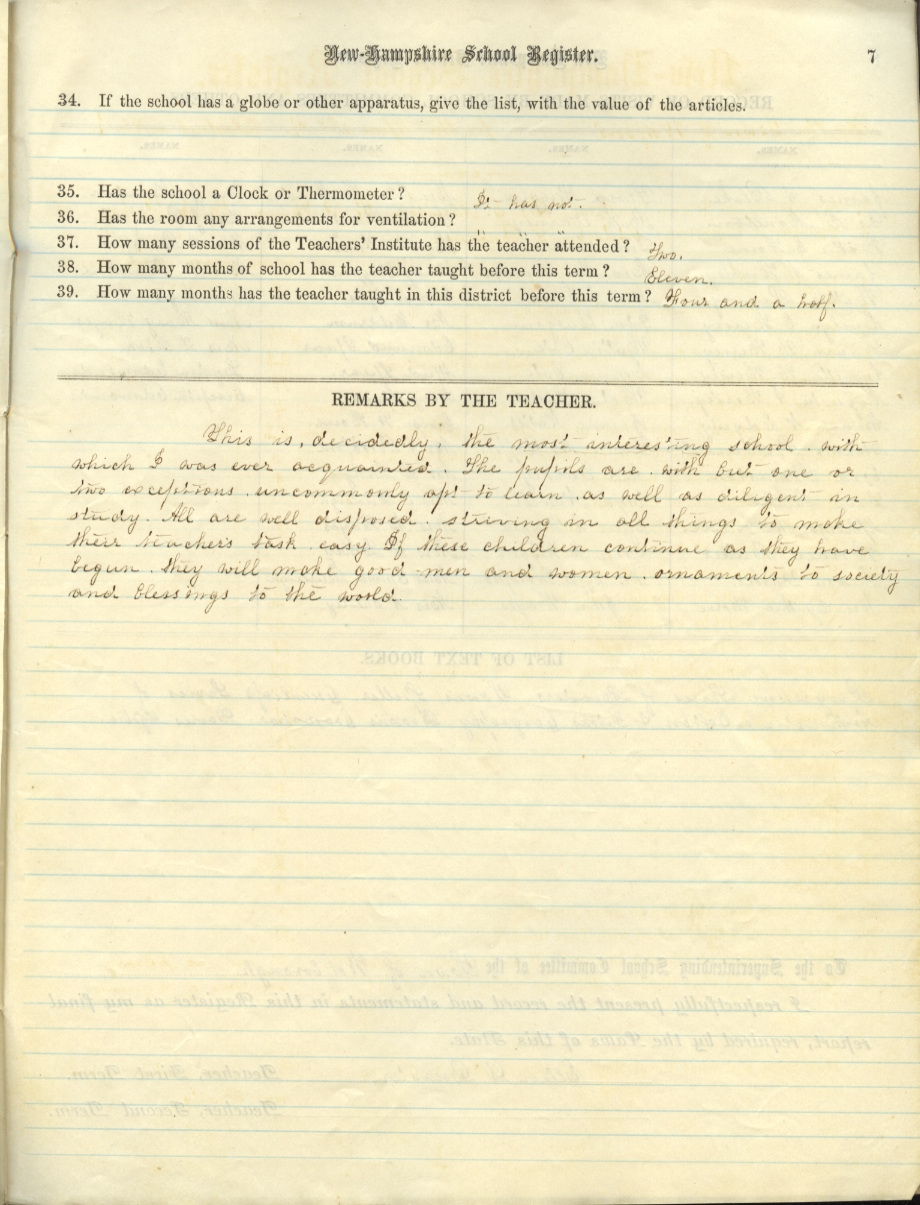 New-Hampshire School Register. 7
34. If the school has a globe or other apparatus, give the list, with the value of the articles.
35. Has the school a Clock or Thermometer? It has not.
36. Has the room any arrangements for ventilation? " " "
37. How many sessions of the Teachers' Institute has the teacher attended? Two.
38. How many months of school has the teacher taught before this term? Eleven.
39. How many months has the teacher taught in this district before this term? Four and a half.
REMARKS BY THE TEACHER.
This is, decidedly, the most interesting school, with
which I was ever acquainted. The pupils are, with but one or
two exceptions, uncommonly apt to learn, as well as diligent in
study. All are well disposed, striving in all things to make
their teachers task easy. If these children continue as they have
begun, they will make good men and women, ornaments to society
and blessings to the world.
LIST OF TEXT BOOKS.
To the Superintending School Committee of the
I respectfully present the record and statements in this Register as my final
report, required by the Laws of this State.
Teacher, First Term.
Teacher, Second Term.